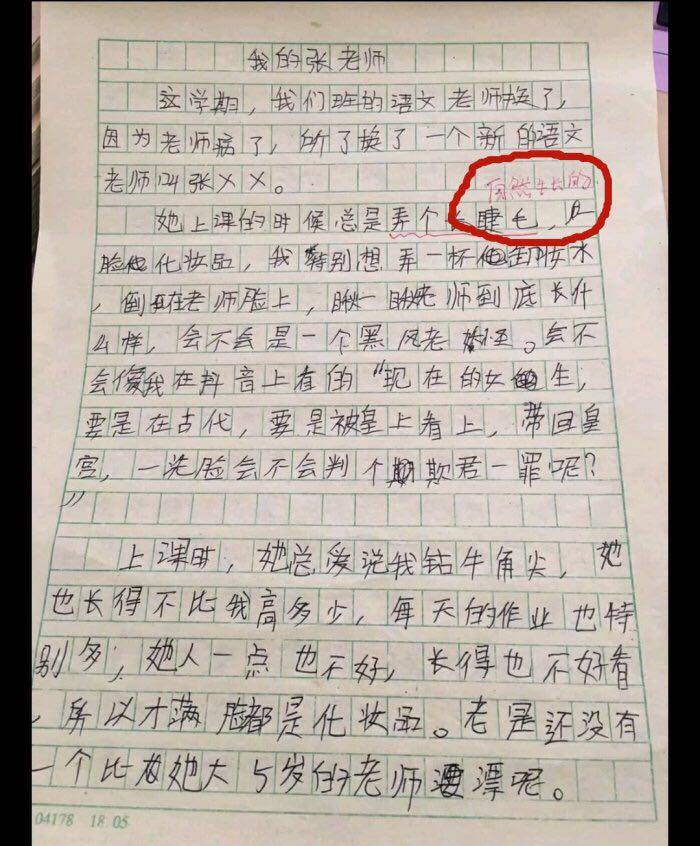 我的张老师
这学期，我们班的语文老师换了，
因为老师病了，所了换了一个新的语文
老师叫张XX。
自然生长的
她上课的时候总是弄个长睫毛，
脸化妆品，我特别想弄一杯卸妆水
，倒在老师脸上，瞅一瞅老师到底长什
么样，会不会是一个黑风老妖怪。会不
会像我在抖音上看的“现在的女生，
要是在古代，要是被皇上看上，带回皇
宫，一洗脸会不会判个欺君一罪呢？
”
上课时，她总爱说我钻牛角尖，她
也长得不比我高多少，每天的作业也特
别多，她人一点也不好，长得也不好看
，所以才满脸都是化妆品。老是还没有
一个比她大5岁的老师漂呢。
04178 18.05